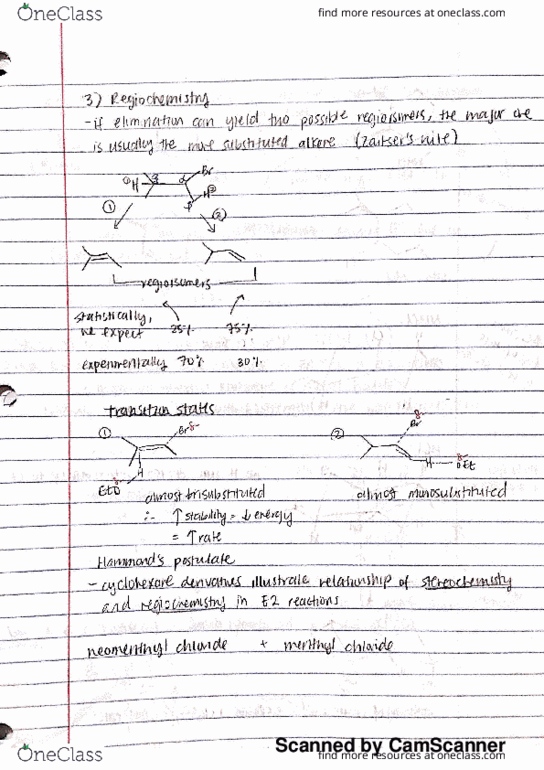 OneClass
find more resources at oneclass.com
3) Regiochemistry
- if elimination can yield two possible regioisomers, the major one
is usually the more substituted alkene (Zaitsev's rule)
Br
H
H
①
②
regioisomers
statistically,
we expect 25% 75%
experimentally 70% 30%
transition states
① Br δ-
② Br δ-
H
H OEt δ-
EtO δ-
almost trisubstituted
almost monosubstituted
∴ ↑ stability = ↓ energy
= ↑ rate
Hammond's postulate
- cyclohexane derivatives illustrate relationship of stereochemistry
and regiochemistry in E2 reactions
neomenthyl chloride + menthyl chloride
Scanned by CamScanner
OneClass
find more resources at oneclass.com